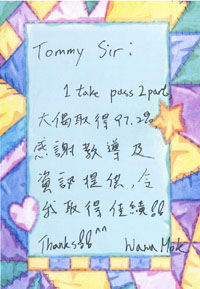 Tommy Sir :
1 take pass 2 part
大僑取得97.2%
感謝教導及
資訊提供,令
我取得佳績!!
Thanks!!^^ Wawa Mok